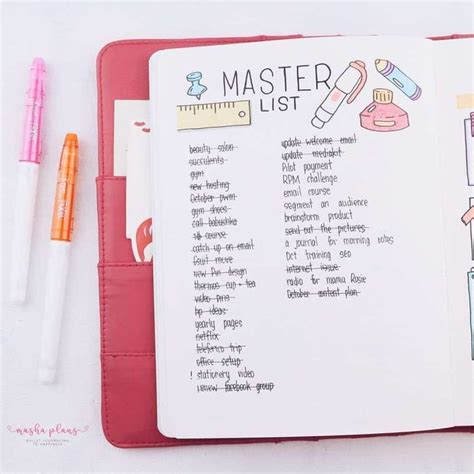 MASTER
LIST
beauty salon
succulents
gym
new hosting
October pwm
gym shoes
call babushka
course
catch up on email
fruit move
new Pin design
thermos cup + tea
video pins
bp ideas
yearly pages
netflix
telefonica trip
office setup
! stationery video
renew facebook group
update welcome email
update mediakit
Pilot payment
RPM challenge
email course
segment an audience
brainstorm product
send out the pictures
a journal for morning notes
Oct training seo
internet issue
radio for mama Rosie
October content plan
masha plans
BULLET JOURNALING
TO HAPPINESS